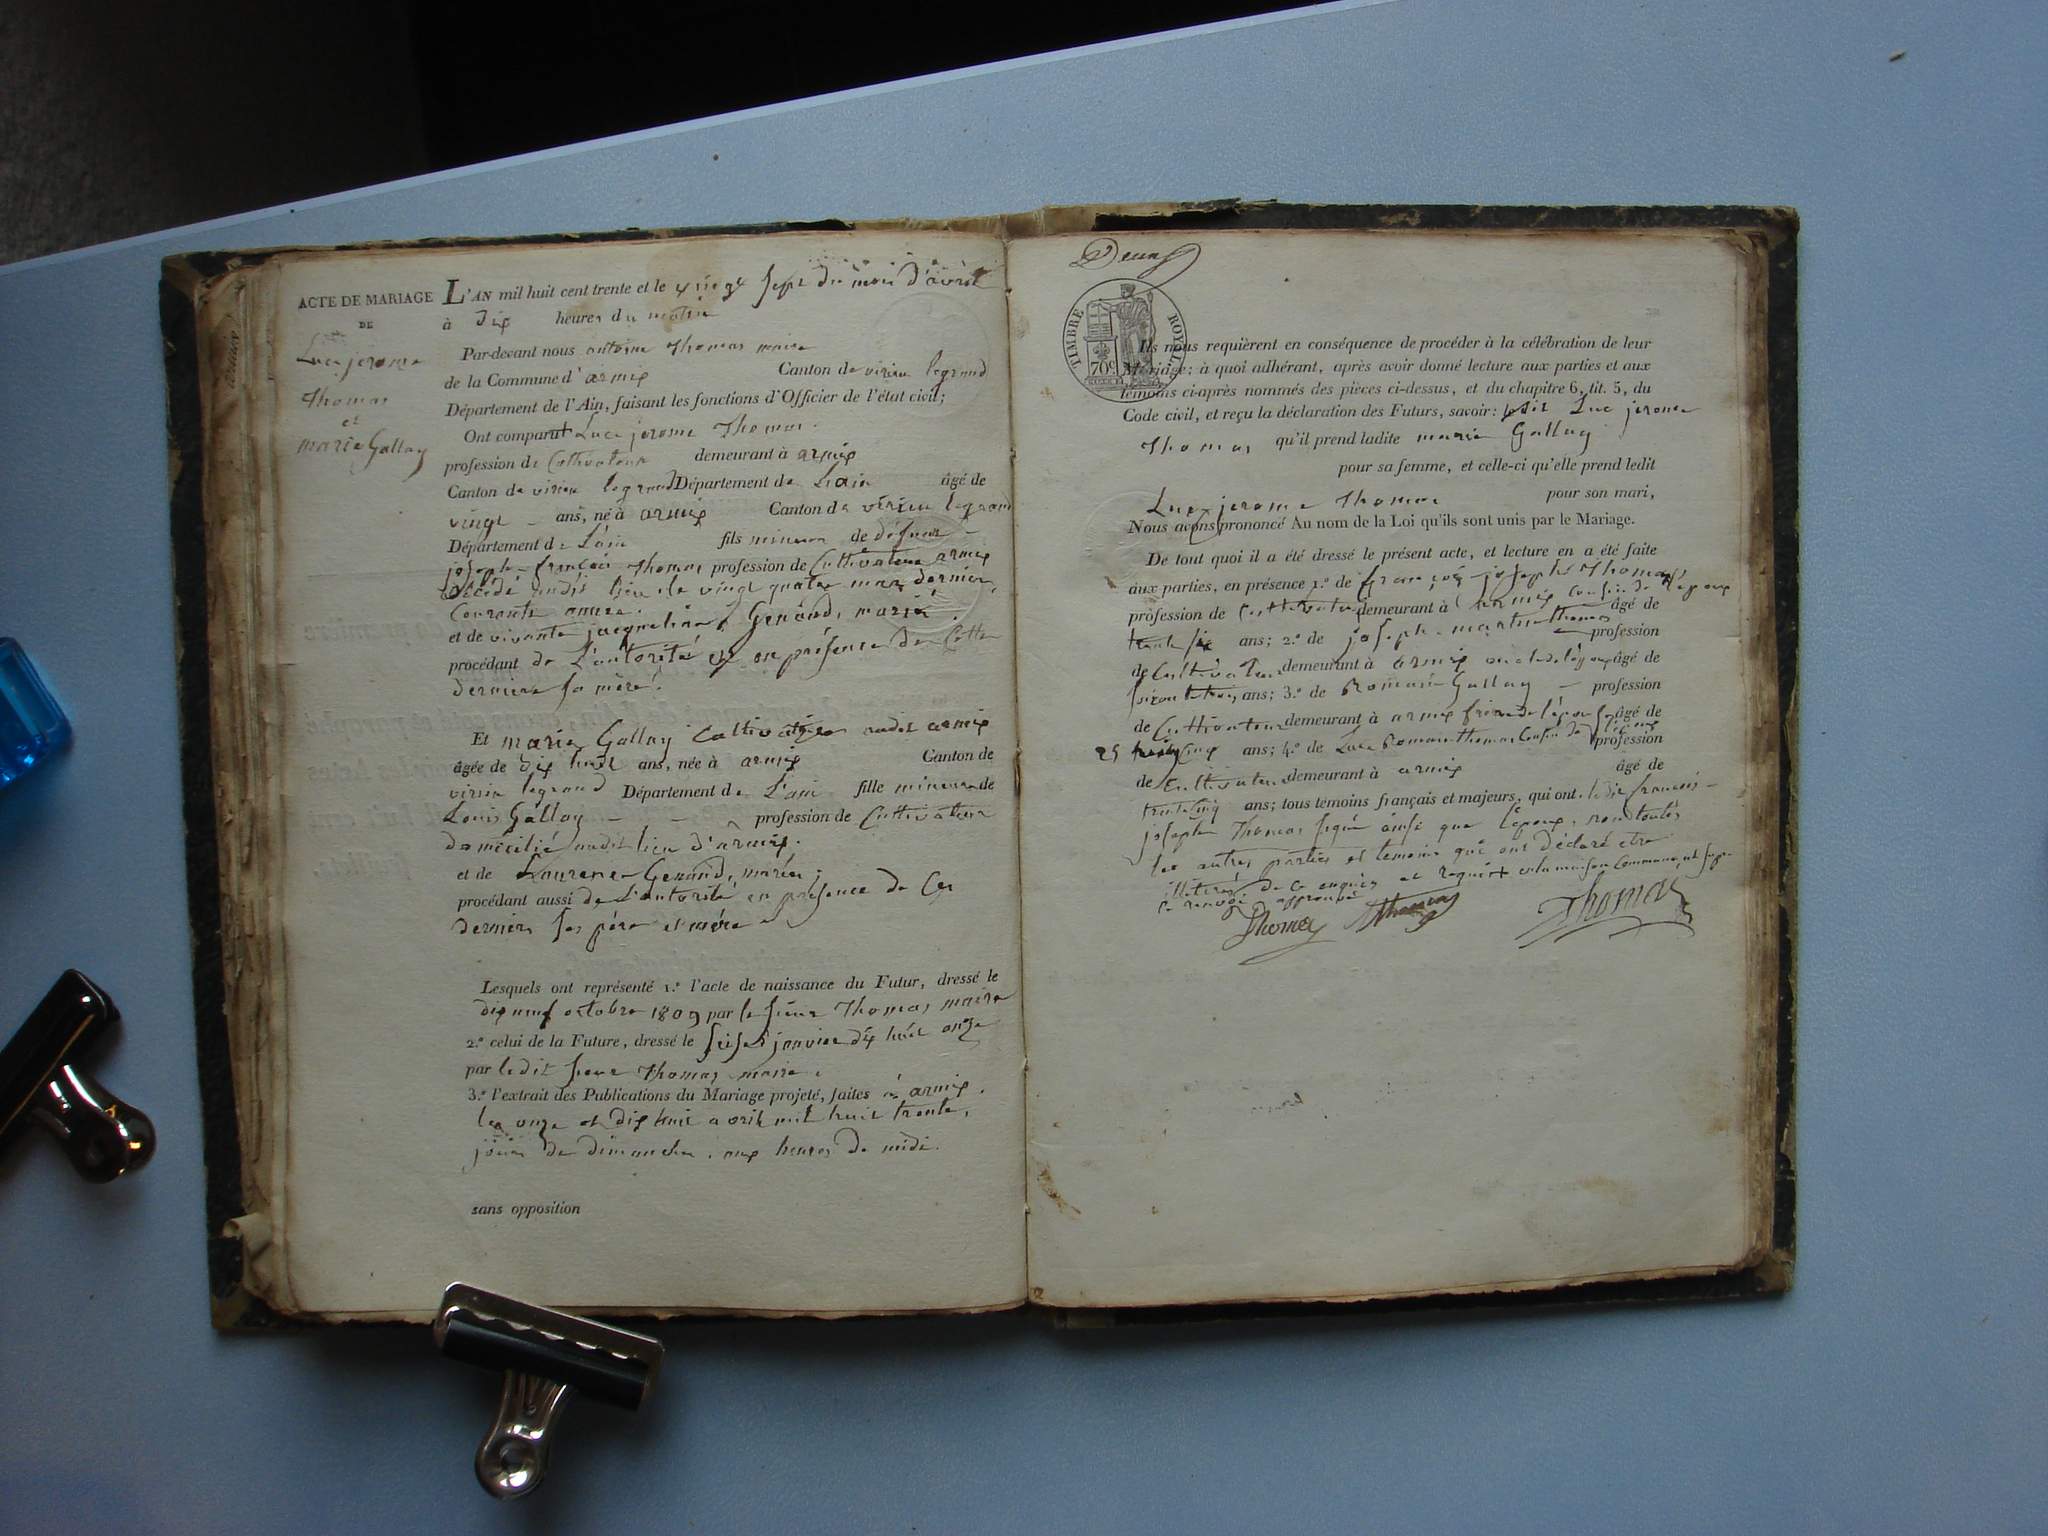 ACTE DE MARIAGE
DE
Luce jerome
Thomas
et
marie Gallay
L'AN mil huit cent trente et le vingt sept du mois d'avril
à dix heures du matin
Par-devant nous antoine Thomas maire
de la Commune d'armix Canton de virieu legrand
Département de l'Ain, faisant les fonctions d'Officier de l'état civil;
Ont comparut Luce jerome Thomas.
profession de Cultivateur demeurant à armix
Canton de virieu legrand Département de Lain âgé de
vingt ans, né à armix Canton de virieu legrand
Département de Lain fils mineur de défunt
joseph-francois Thomas profession de Cultivateur armix
Décédé audit lieu le vingt quatre mars dernier
Courante annee.
et de vivante jacqueline Genand, marié
procédant de L'autorité et en présence de Cette
derniere sa mère.
Et marie Gallay Cultivatrice audit armix
âgée de dix huit ans, née à armix Canton de
virieu legrand Département de L'ain fille mineure de
Louis Gallay profession de Cultivateur
domicilié audit lieu d'armix.
et de Laurence Genand, mariés;
procédant aussi de L'autorité en présence de Ces
derniers ses père et mère
Lesquels ont représenté 1.º l'acte de naissance du Futur, dressé le
dix neuf octobre 1809 par le sieur Thomas maire
2.º celui de la Future, dressé le seise janvier dix huit onze
par ledit sieur Thomas maire.
3.º l'extrait des Publications du Mariage projeté, faites à armix.
les onze et dix huit avril mil huit trente,
jours de dimanche, aux heures de midi.
sans opposition
Deux
TIMBRE ROYAL
70c
Ils nous requièrent en conséquence de procéder à la célébration de leur
Mariage; à quoi adhérant, après avoir donné lecture aux parties et aux
témoins ci-après nommés des pièces ci-dessus, et du chapitre 6, tit. 5, du
Code civil, et reçu la déclaration des Futurs, savoir: ledit Luc jerome
Thomas qu'il prend ladite marie Gallay
pour sa femme, et celle-ci qu'elle prend ledit
Luc jerome Thomas pour son mari,
Nous avons prononcé Au nom de la Loi qu'ils sont unis par le Mariage.
De tout quoi il a été dressé le présent acte, et lecture en a été faite
aux parties, en présence 1.º de françois joseph Thomas
profession de Cultivateur demeurant à armix cousin de l'epoux âgé de
trente six ans; 2.º de joseph-martin thomas profession
de Cultivateur demeurant à armix oncle de l'époux âgé de
soixante trois ans; 3.º de Romain Gallay profession
de Cultivateur demeurant à armix frère de l'épouse âgé de
25 cinq ans; 4.º de Luce Romain thomas Cousin de l'épouse profession
de Cultivateur demeurant à armix âgé de
trente cinq ans; tous témoins français et majeurs, qui ont ledit francois
joseph Thomas signé ainsi que l'époux, non toutes
les autres parties et temoins qui ont déclaré etre
illiterés de ce enquis et requis en la maison Commune,
ce renvoi approuvé
Thomas Thomas Thomas